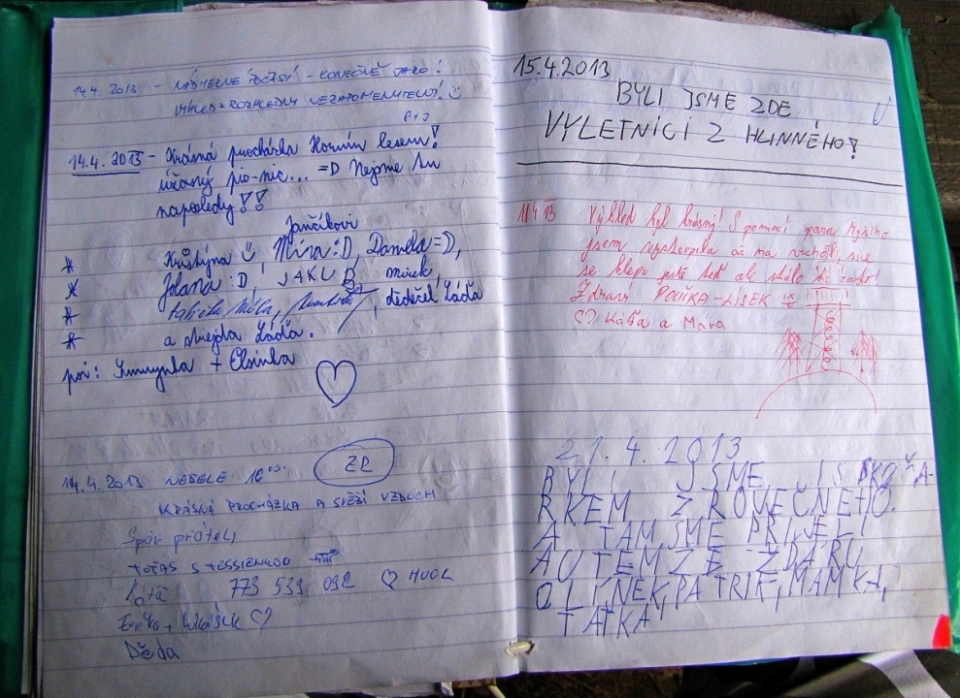 14.4. 2013 - NÁDHERNÉ POČASÍ - KONEČNĚ JARO!
VÝHLED Z ROZHLEDNY NEZAPOMENUTELNÝ!
P+J
14.4. 2013 - Krásná procházka Horním lesem!
úžasný pic-nic... =D Nejsme tu
naposledy!!
Jančíkovi
Kristýna, Míra :D, Daniela =D,
Jolana :D, JAKUB, mirek,
dědeček Láďa
a strejda Láďa.
psi: + Elsinka
14.4. 2013 NEDĚLE 16 00
ZR
KRÁSNÁ PROCHÁZKA A SVĚŽÍ VZDUCH
Spár přátel
S TESSIENKOU
773 539 092
+ Lukášek
Děda
15.4.2013
BYLI JSME ZDE
VÝLETNÍCI Z HLINNÉHO!
Výhled byl krásný! S pomocí pana
jsem vystoupala až na vrchol, sice
se klepu ještě teď ale stálo to zato!
Zdraví
Káťa a Mára
21.4.2013
BYLI JSME
Z ROVEČNÉHO.
A TAM SME PŘIJELI
AUTEM ZE ZDÁRU
OLÍNEK, PATRIK, MAMKA,
TAŤKA